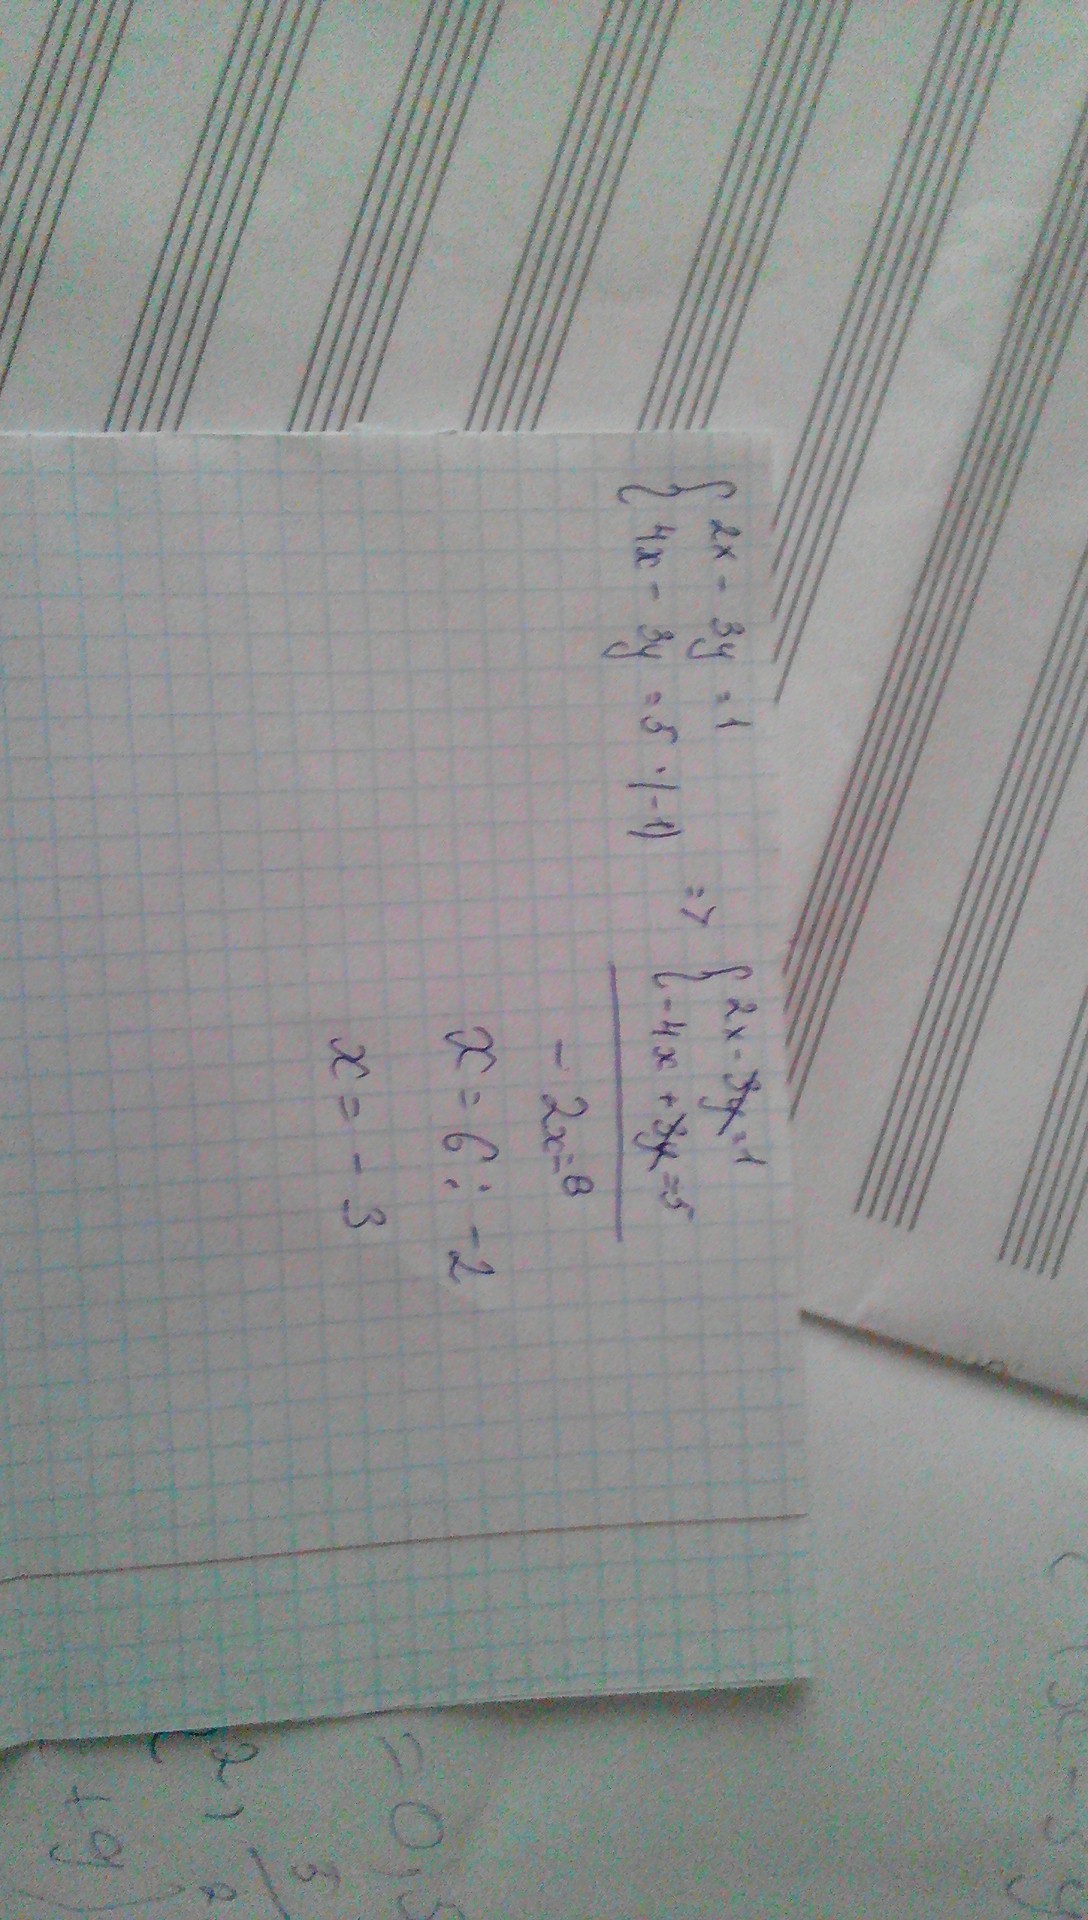 { 2x - 3y = 1
{ 4x - 3y = 5 ·(-1)
=> { 2x - 3y = 1
{ -4x + 3y = 5
- 2x = 8
x = 6 : -2
x = - 3
= 0,5